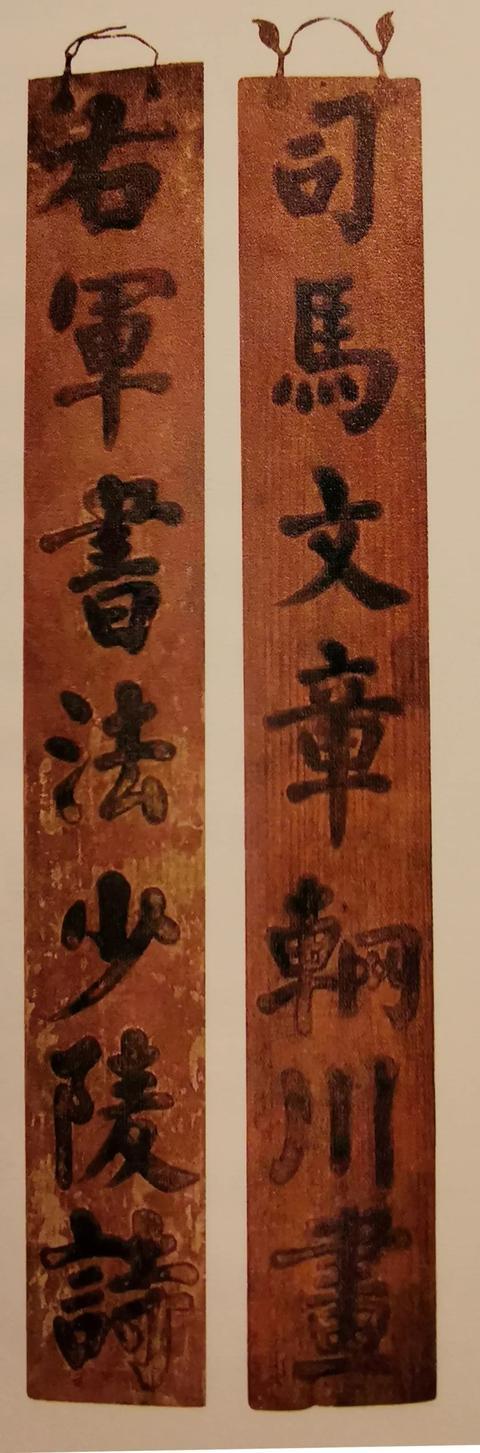 司馬文章輞川畫
右軍書法少陵詩